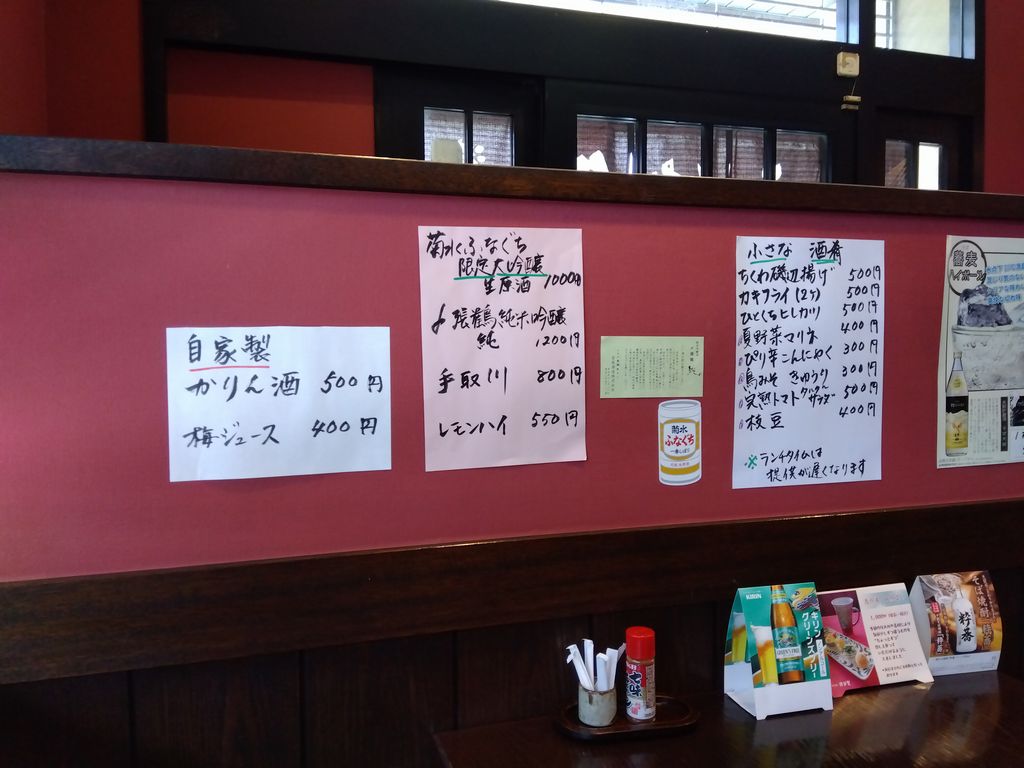 自家製
かりん酒 500円
梅ジュース 400円
菊水ふなぐち
限定大吟醸
生原酒 1000円
〆張鶴 純米吟醸
純 1200円
手取川 800円
レモンハイ 550円
菊水
ふなぐち
一番しぼり
小さな 酒肴
ちくわ磯辺揚げ 500円
カキフライ(2ヶ) 500円
ひとくちヒレカツ 500円
夏野菜マリネ 400円
ぴり辛こんにゃく 300円
鳥みそ きゅうり 300円
完熟トマト サラダ 500円
枝豆 400円
※ランチタイムは
提供が遅くなります
蕎麦
ハイボール
KIRIN
キリン
グリーンズフリー
GREEN'S FREE
1,000円
そば焼酎
粋蕎
七味